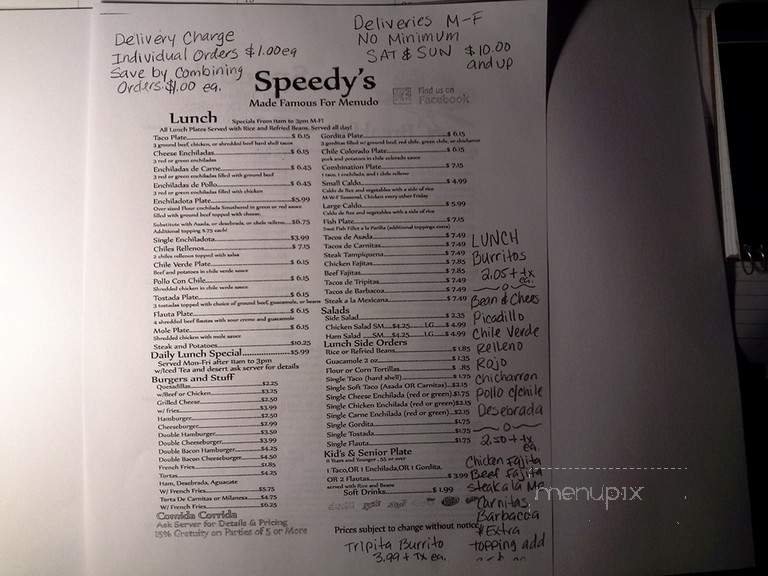 Delivery Charge
Individual Orders $1.00 ea
Save by Combining
Orders $1.00 ea.
Deliveries M-F
No Minimum
SAT & SUN $10.00
and up
Speedy's
Made Famous For Menudo
Find us on
Facebook
Lunch Specials From 11am to 3pm M-F!
All Lunch Plates Served with Rice and Refried Beans. Served all day!
Taco Plate $ 6.15
3 ground beef, chicken, or shredded beef hard shell tacos
Cheese Enchiladas $ 6.15
3 red or green enchiladas
Enchiladas de Carne $ 6.45
3 red or green enchiladas filled with ground beef
Enchiladas de Pollo $ 6.45
3 red or green enchiladas filled with chicken
Enchiladota Plate $5.99
Over sized Flour enchilada Smothered in green or red sauce
filled with ground beef topped with cheese.
Substitute with Asada, or desebrada, or chile relleno $6.75
Additional topping $.75 each!
Single Enchiladota $3.99
Chiles Rellenos $ 7.15
2 chiles rellenos topped with salsa
Chile Verde Plate $ 6.15
Beef and potatoes in chile verde sauce
Pollo Con Chile $ 6.15
Shredded chicken in chile verde sauce
Tostada Plate $ 6.15
3 tostadas topped with choice of ground beef, guacamole, or beans
Flauta Plate $ 6.15
4 shredded beef flautas with sour creme and guacamole
Mole Plate $ 6.15
Shredded chicken with mole sauce
Steak and Potatoes $10.25
Daily Lunch Special $5.99
Served Mon-Fri after 11am to 3pm
w/Iced Tea and desert ask server for details
Burgers and Stuff
Quesadillas $2.25
w/Beef or Chicken $3.25
Grilled Cheese $2.50
w/ fries $3.99
Hamburger $2.50
Cheeseburger $2.99
Double Hamburger $3.50
Double Cheeseburger $3.99
Bacon Hamburger $4.25
Double Bacon Cheeseburger $4.50
French Fries $1.85
Tortas $4.25
Ham, Desebrada, Aguacate
W/ French Fries $5.75
Torta De Carnitas or Milanesa $4.75
W/ French Fries $6.25
Comida Corrida
Ask Server for Details & Pricing
15% Gratuity on Parties of 5 or More
Gordita Plate $ 6.15
3 gorditas filled w/ ground beef, red chile, green chile, or chicharron
Chile Colorado Plate $ 6.15
pork and potatoes in chile colorado sauce
Combination Plate $ 7.15
1 taco, 1 enchilada, and 1 chile relleno
Small Caldo $ 4.99
Caldo de Res and vegetables with a side of rice
M-W-F Seasonal, Chicken every other Friday
Large Caldo $ 5.99
Caldo de Res and vegetables with a side of rice
Fish Plate $ 7.15
Swai Fish Fillet a la Parilla (additional toppings extra)
Tacos de Asada $ 7.49
Tacos de Carnitas $ 7.49
Steak Tampiquena $ 7.49
Chicken Fajitas $ 7.85
Beef Fajitas $ 7.85
Tacos de Tripitas $ 7.49
Tacos de Barbacoa $ 7.49
Steak a la Mexicana $ 7.49
Salads
Side Salad $ 2.35
Chicken Salad SM $4.25 LG $ 4.99
Ham Salad SM $4.25 LG $ 4.99
Lunch Side Orders
Rice or Refried Beans $1.85
Guacamole 2 oz $1.35
Flour or Corn Tortillas $ .85
Single Taco (hard shell) $ 1.75
Single Soft Taco (Asada OR Carnitas) $2.15
Single Cheese Enchilada (red or green) $1.75
Single Chicken Enchilada (red or green) $2.15
Single Carne Enchilada (red or green) $2.15
Single Gordita $1.75
Single Tostada $1.75
Single Flauta $1.75
Kid's & Senior Plate
11 Years and Younger, 55 or over
1 Taco,OR 1 Enchilada,OR 1 Gordita,
OR 2 Flautas $ 3.99
served with Rice and Beans
Soft Drinks $ 1.99
Prices subject to change without notice
Tripita Burrito
3.99 + Tx ea.
LUNCH
Burritos
2.05 + tx
ea.
Bean & Chees
Picadillo
Chile Verde
Relleno
Rojo
Chicharron
Pollo c/chile
Desebrada
2.50 + tx
ea
Chicken Fajita
Beef Fajita
Steak a la Mx
Carnitas
Barbacoa
* Extra
topping add
menupix